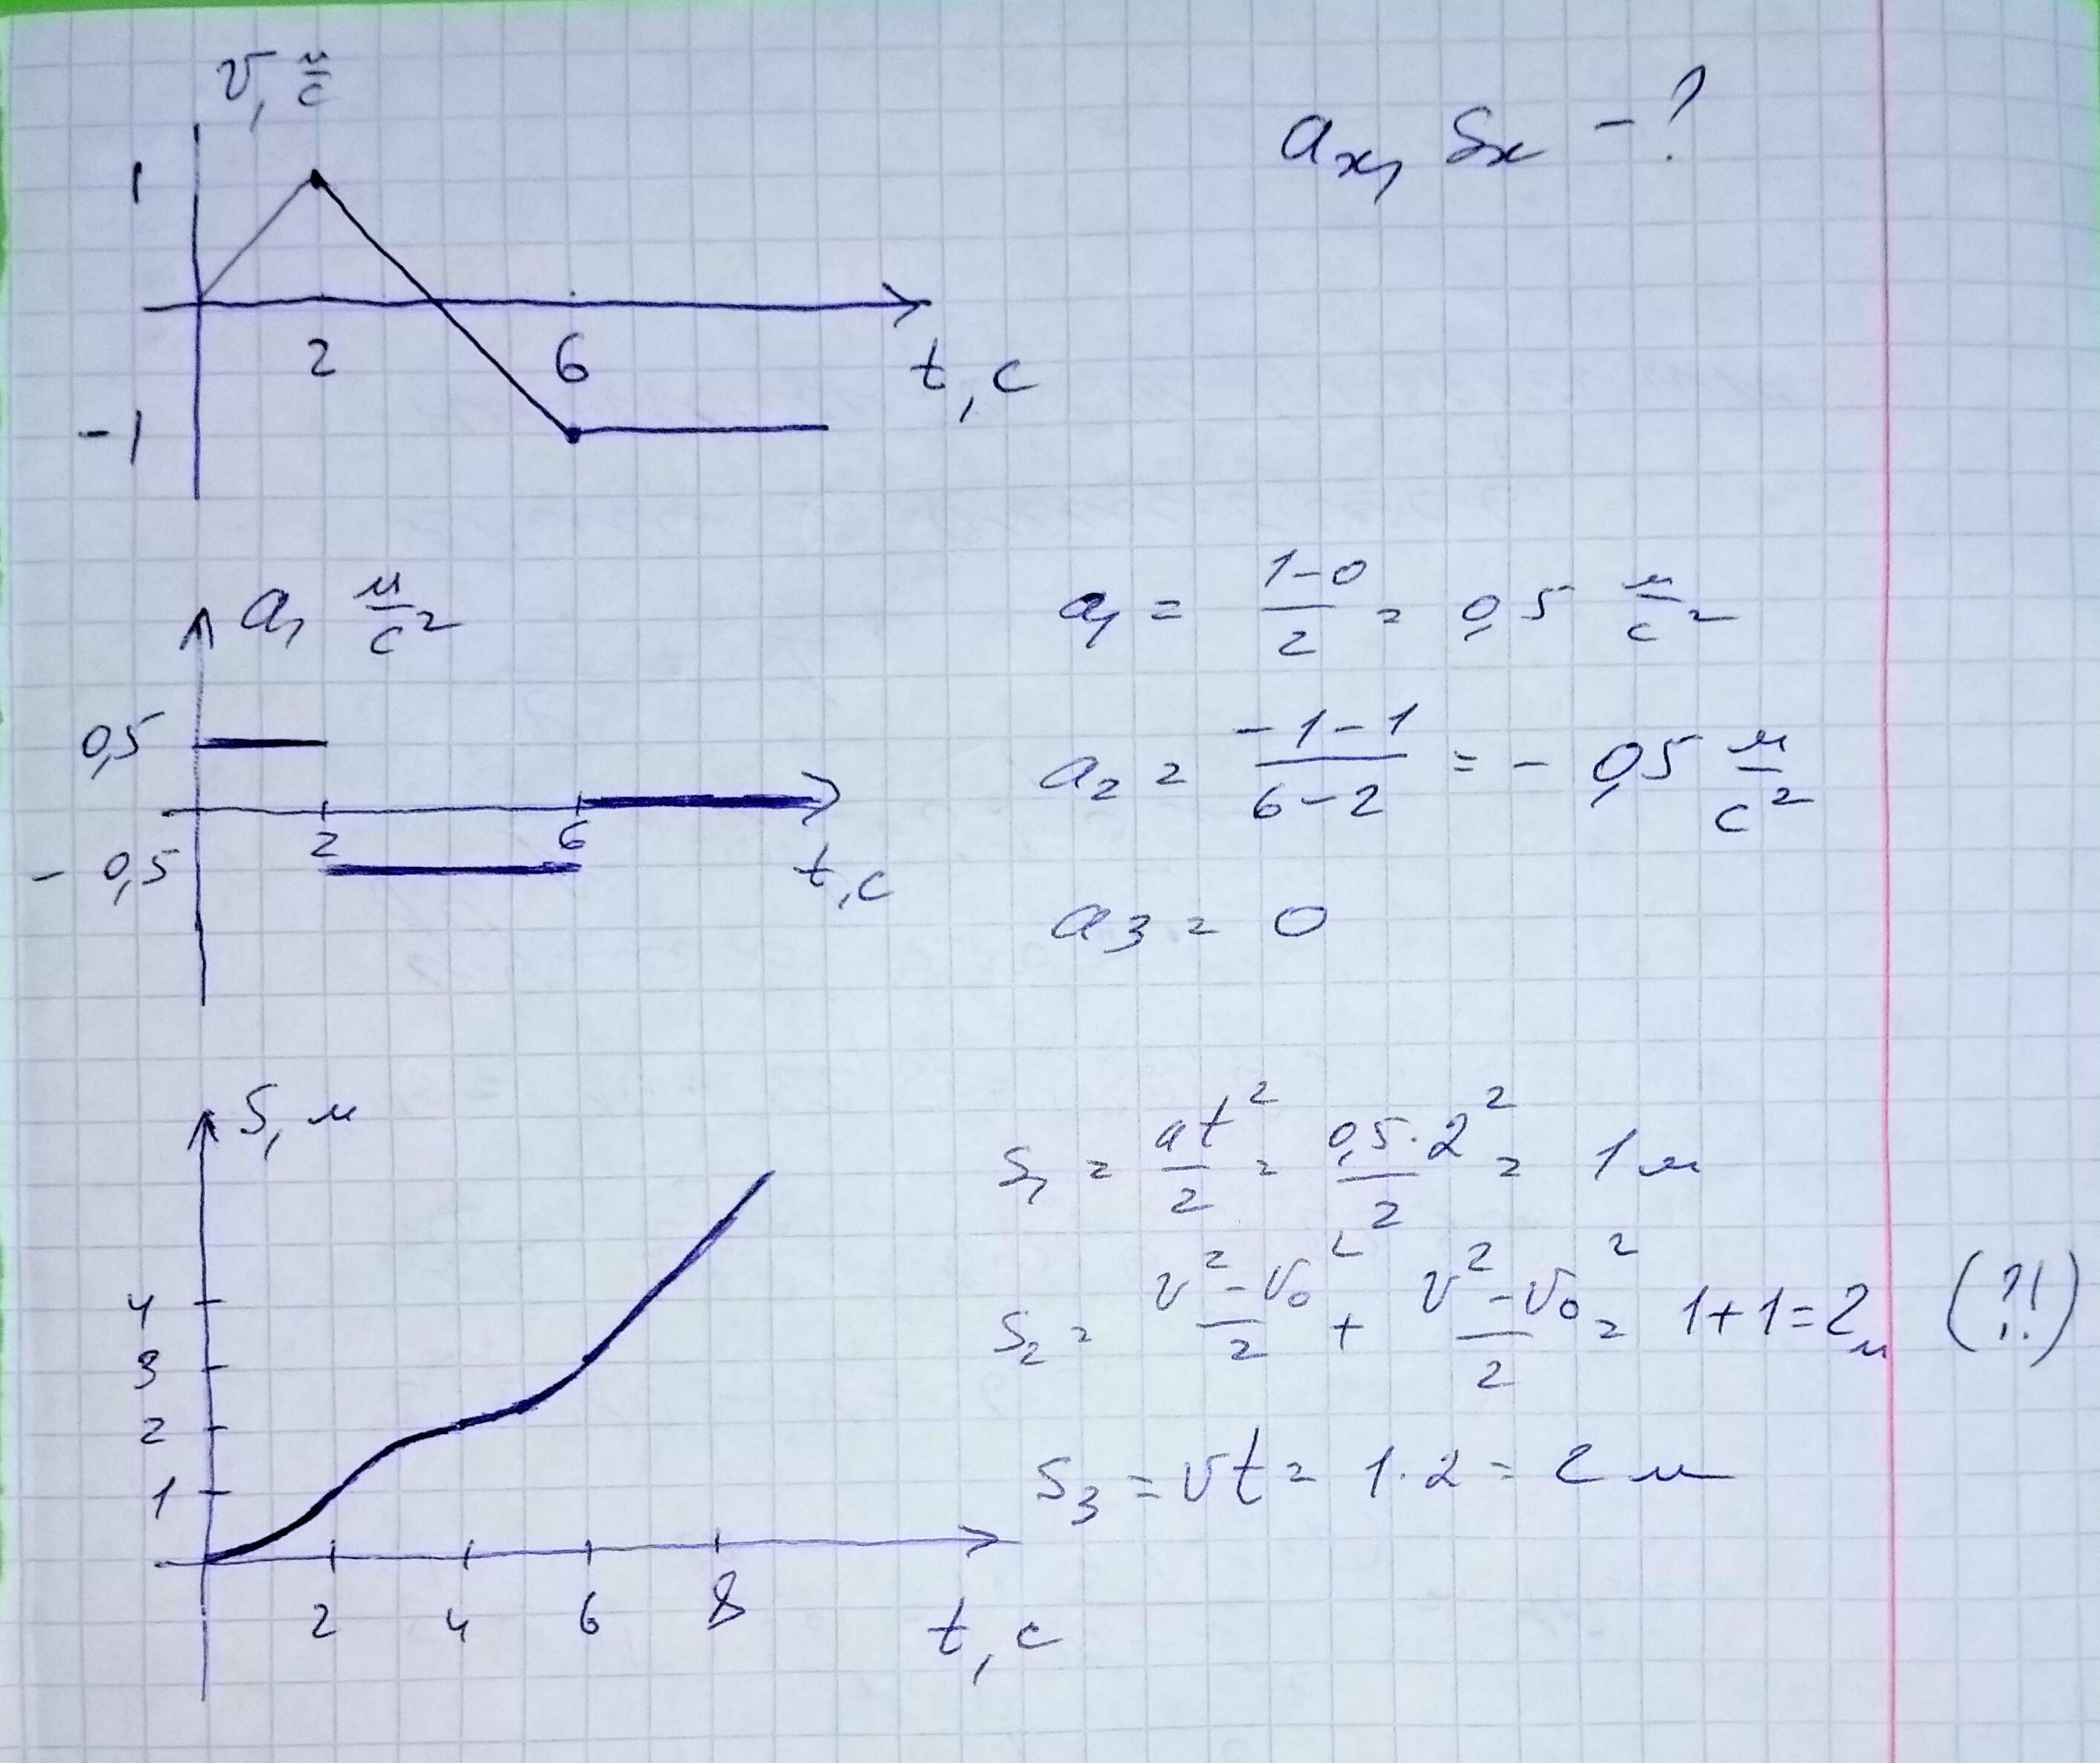 v, м/с
aₓ, Sₓ - ?
1
2 6 t, с
-1
a, м/с²
0,5
2 6
- 0,5 t, с
a₁ = (1-0)/2 = 0,5 м/с²
a₂ = (-1-1)/(6-2) = - 0,5 м/с²
a₃ = 0
S, м
4
3
2
1
2 4 6 8 t, с
S₁ = at²/2 = 0,5·2²/2 = 1 м
S₂ = (v²-v₀²)/2 + (v²-v₀²)/2 = 1+1=2 м (?!)
S₃ = vt = 1·2 = 2 м